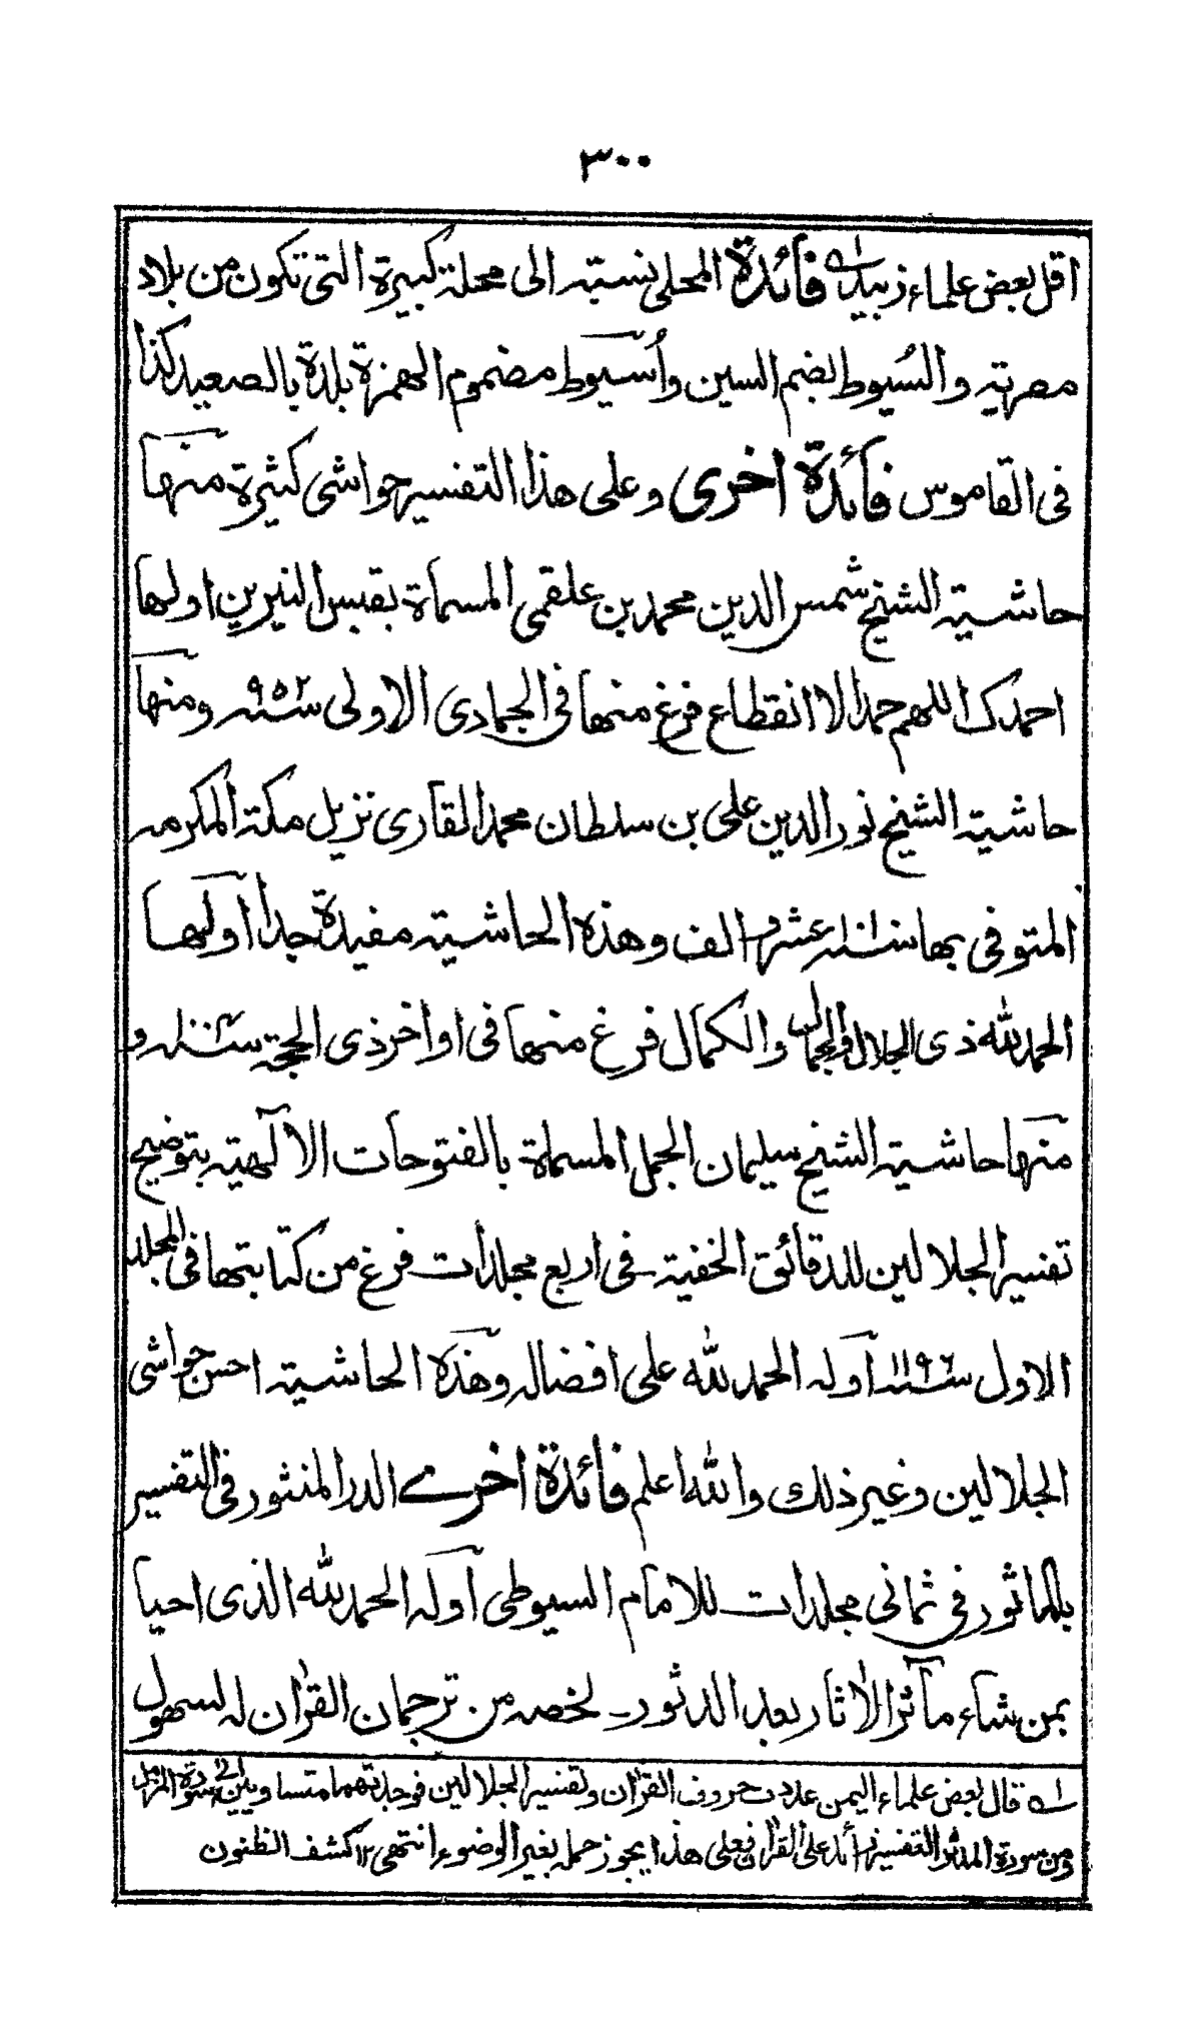 ٣٠٠
اقل بعض علماء زبيد فائدة المحلى نسبته الى محلة كبيرة التى تكون من بلاد
مصرية والسُيوط بضم السين وأُسيوط مضموم الهمزة بلدة بالصعيد كذا
فى القاموس فائدة اخرى وعلى هذا التفسير حواشى كثيرة منها
حاشية الشيخ شمس الدين محمد بن علقمى المسماة بقبس النيرين اولها
احمدك اللهم حمدا لا انقطاع فرغ منها فى الجمادى الاولى سنه ٩٥٢ ومنها
حاشية الشيخ نور الدين على بن سلطان محمد القارى نزيل مكة المكرمه
المتوفى بها سنه ١٠١٠ عشر والف وهذه الحاشية مفيدة جدا اولها
الحمد لله ذى الجلال والجمال والكمال فرغ منها فى اواخر ذى الحجة سنه ١٠٠٤ و
منها حاشية الشيخ سليمان الجمل المسماة بالفتوحات الآلهية بتوضيح
تفسير الجلالين للدقائق الخفية فى اربع مجلدات فرغ من كتابتها فى المجلد
الاول سنه ١١٩٦ اوله الحمد لله على افضاله وهذه الحاشية احسن حواشى
الجلالين وغير ذلك والله اعلم فائدة اخرے الدر المنثور فى التفسير
بالماثور فى ثمانى مجلدات للامام السيوطى اوله الحمد لله الذى احيا
بمن شاء مآثر الاثار بعد الدثور لخصه من ترجمان القران له لسهول
له قال بعض علماء اليمن عددت حروف القران وتفسير الجلالين فوجدتهما متساويين الى سورة المزمل
ومن سورة المدثر التفسير زائد على القران فعلى هذا يجوز حمله بغير الوضوء انتهى ١٢ كشف الظنون